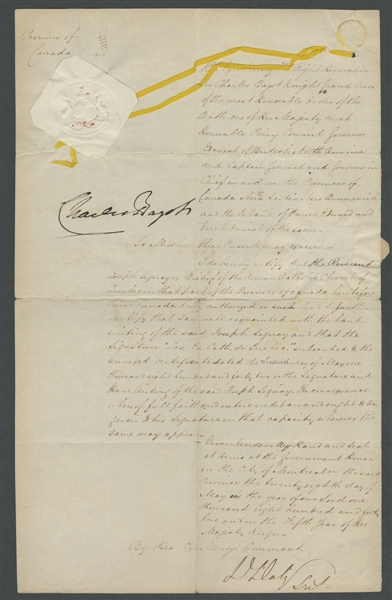 Province of
Canada
His Excellency the Right Honorable
Sir Charles Bagot Knight Grand Cross
of the most Honorable Order of the
Bath one of Her Majesty's most
Honorable Privy Council Governor
General of British North America
and Captain General and Governor in
Chief in and over the Provinces of
Canada Nova Scotia New Brunswick
and the Island of Prince Edward and
Vice Admiral of the same
Charles Bagot
To all whom these Presents may concern
I do hereby certify that the Reverend
Joseph Signay is Bishop of the Roman Catholic Church of
Quebec in that part of the Province of Canada
Canada duly authorized as such and I further
certify that I am acquainted with the Hand
writing of the said Joseph Signay and that the
Signature "Jos. Ev. Cath. de Quebec" subscribed to the
annexed certificate dated the day of May one
thousand eight hundred and forty two is the Signature and
Hand writing of the said Joseph Signay. In consequence
whereof full faith and entire credit are and ought to be
given to his Signature in that capacity wherever the
same may appear
Given under My Hand and Seal
at Arms at the Government House
in the City of Montreal in the said
Province the twenty eighth day of
May in the year of our Lord one
thousand eight hundred and forty
two and in the fifth Year of Her
Majesty's Reign
By His Excellency's Command
D Daly
Sec